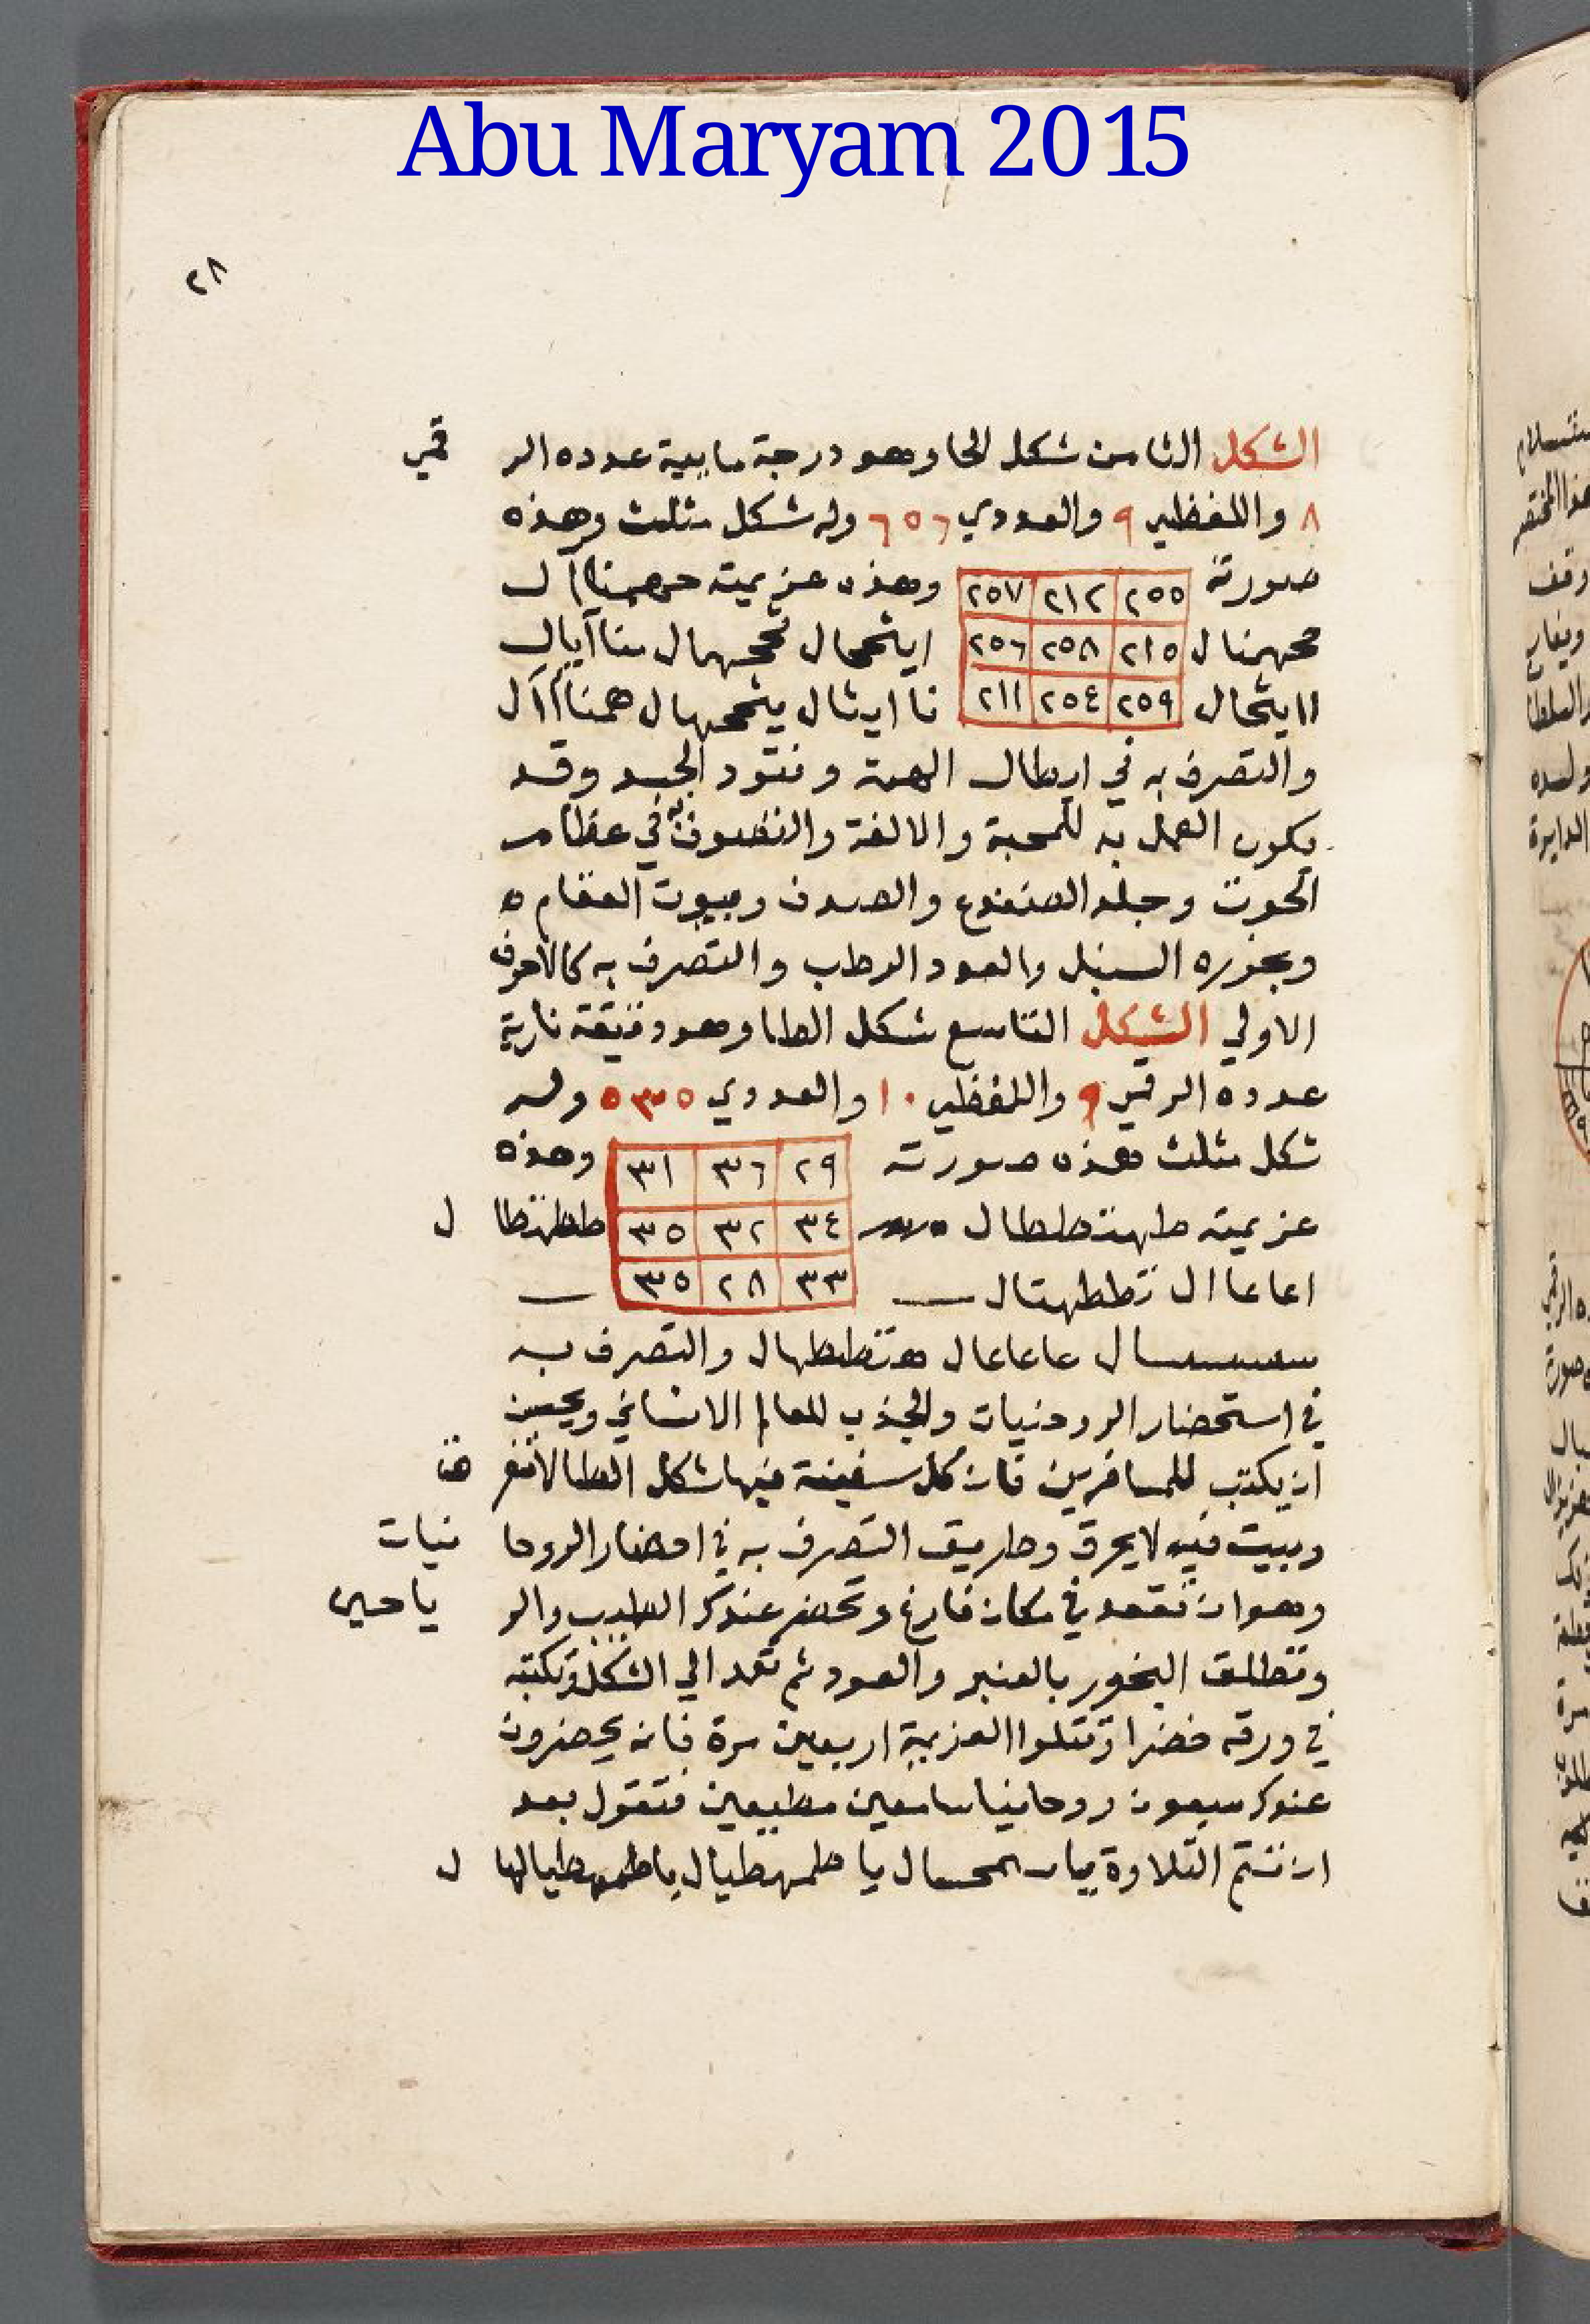 Abu Maryam 2015
٢٨
الشكل الثامن شكل الحا وهو درجة مايية عدده الر قمي
٨ واللفظي ٩ والعددي ٦٥٦ وله شكل مثلث وهذه
صورته ٢٥٥ ٢١٢ ٢٥٧ وهذه عزيمته
محهمنال ٢١٥ ٢٥٨ ٢٥٦
اايثحال ٢٥٩ ٢٥٤ ٢١١ نا ايثال
والتصرف به في ابطال الهمة وفتود الجسد وقد
يكون العمل به للمحبة والالفة والنقش في عظام
الحوت وجلد الضفدع والصدف وبيوت
وبخوره السنبل والعود الرطب والتصرف به كالاحرف
الاولي الشكل التاسع شكل الطا وهو دقيقة نارية
عدده الرقمي ٩ واللفظي ١٠ والعددي ٥٣٥ وله
شكل مثلث هذه صورته ٢٩ ٣٦ ٣١ وهذه
عزيمته طهتططال ٣٤ ٣٢ ٣٥ ططهتطا ل
اعاعاال تططهتال ٣٣ ٢٨ ٣٥
عاعاعال هتططهال والتصرف به
في استحضار الروحنيات والجذب للعالم الانساني ويحسن
ان يكتب للمسافرين فان كل سفينة فيها شكل الطا لا تغر ق
وبيت فيه لا يحرق وطريق التصرف به في احضار الروحا نيات
وهو ان تقعد في مكان فارغ وتحضر عندك الطيب والر ياحين
وتطلق البخور بالعنبر والعود ثم تعمد الي الشكل وتكتبه
في ورقه خضرا وتتلوا العزيمة اربعين مرة فانه يحضرون
عندك سبعون روحانيا سامعين مطيعين فتقول بعد
ان تتم التلاوة يا طمهطيال يا طمهطيالها ل